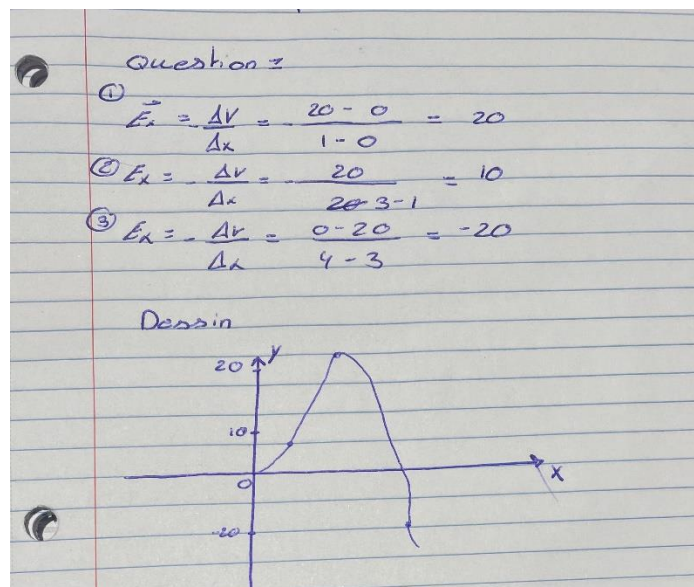 Question =
①
E⃗x = -ΔV/Δx = -(20 - 0)/(1 - 0) = 20
② Ex = -ΔV/Δx = -20/(3 - 1) = 10
③ Ex = -ΔV/Δx = (0 - 20)/(4 - 3) = -20
Dessin
20 y
10
0 x
-20